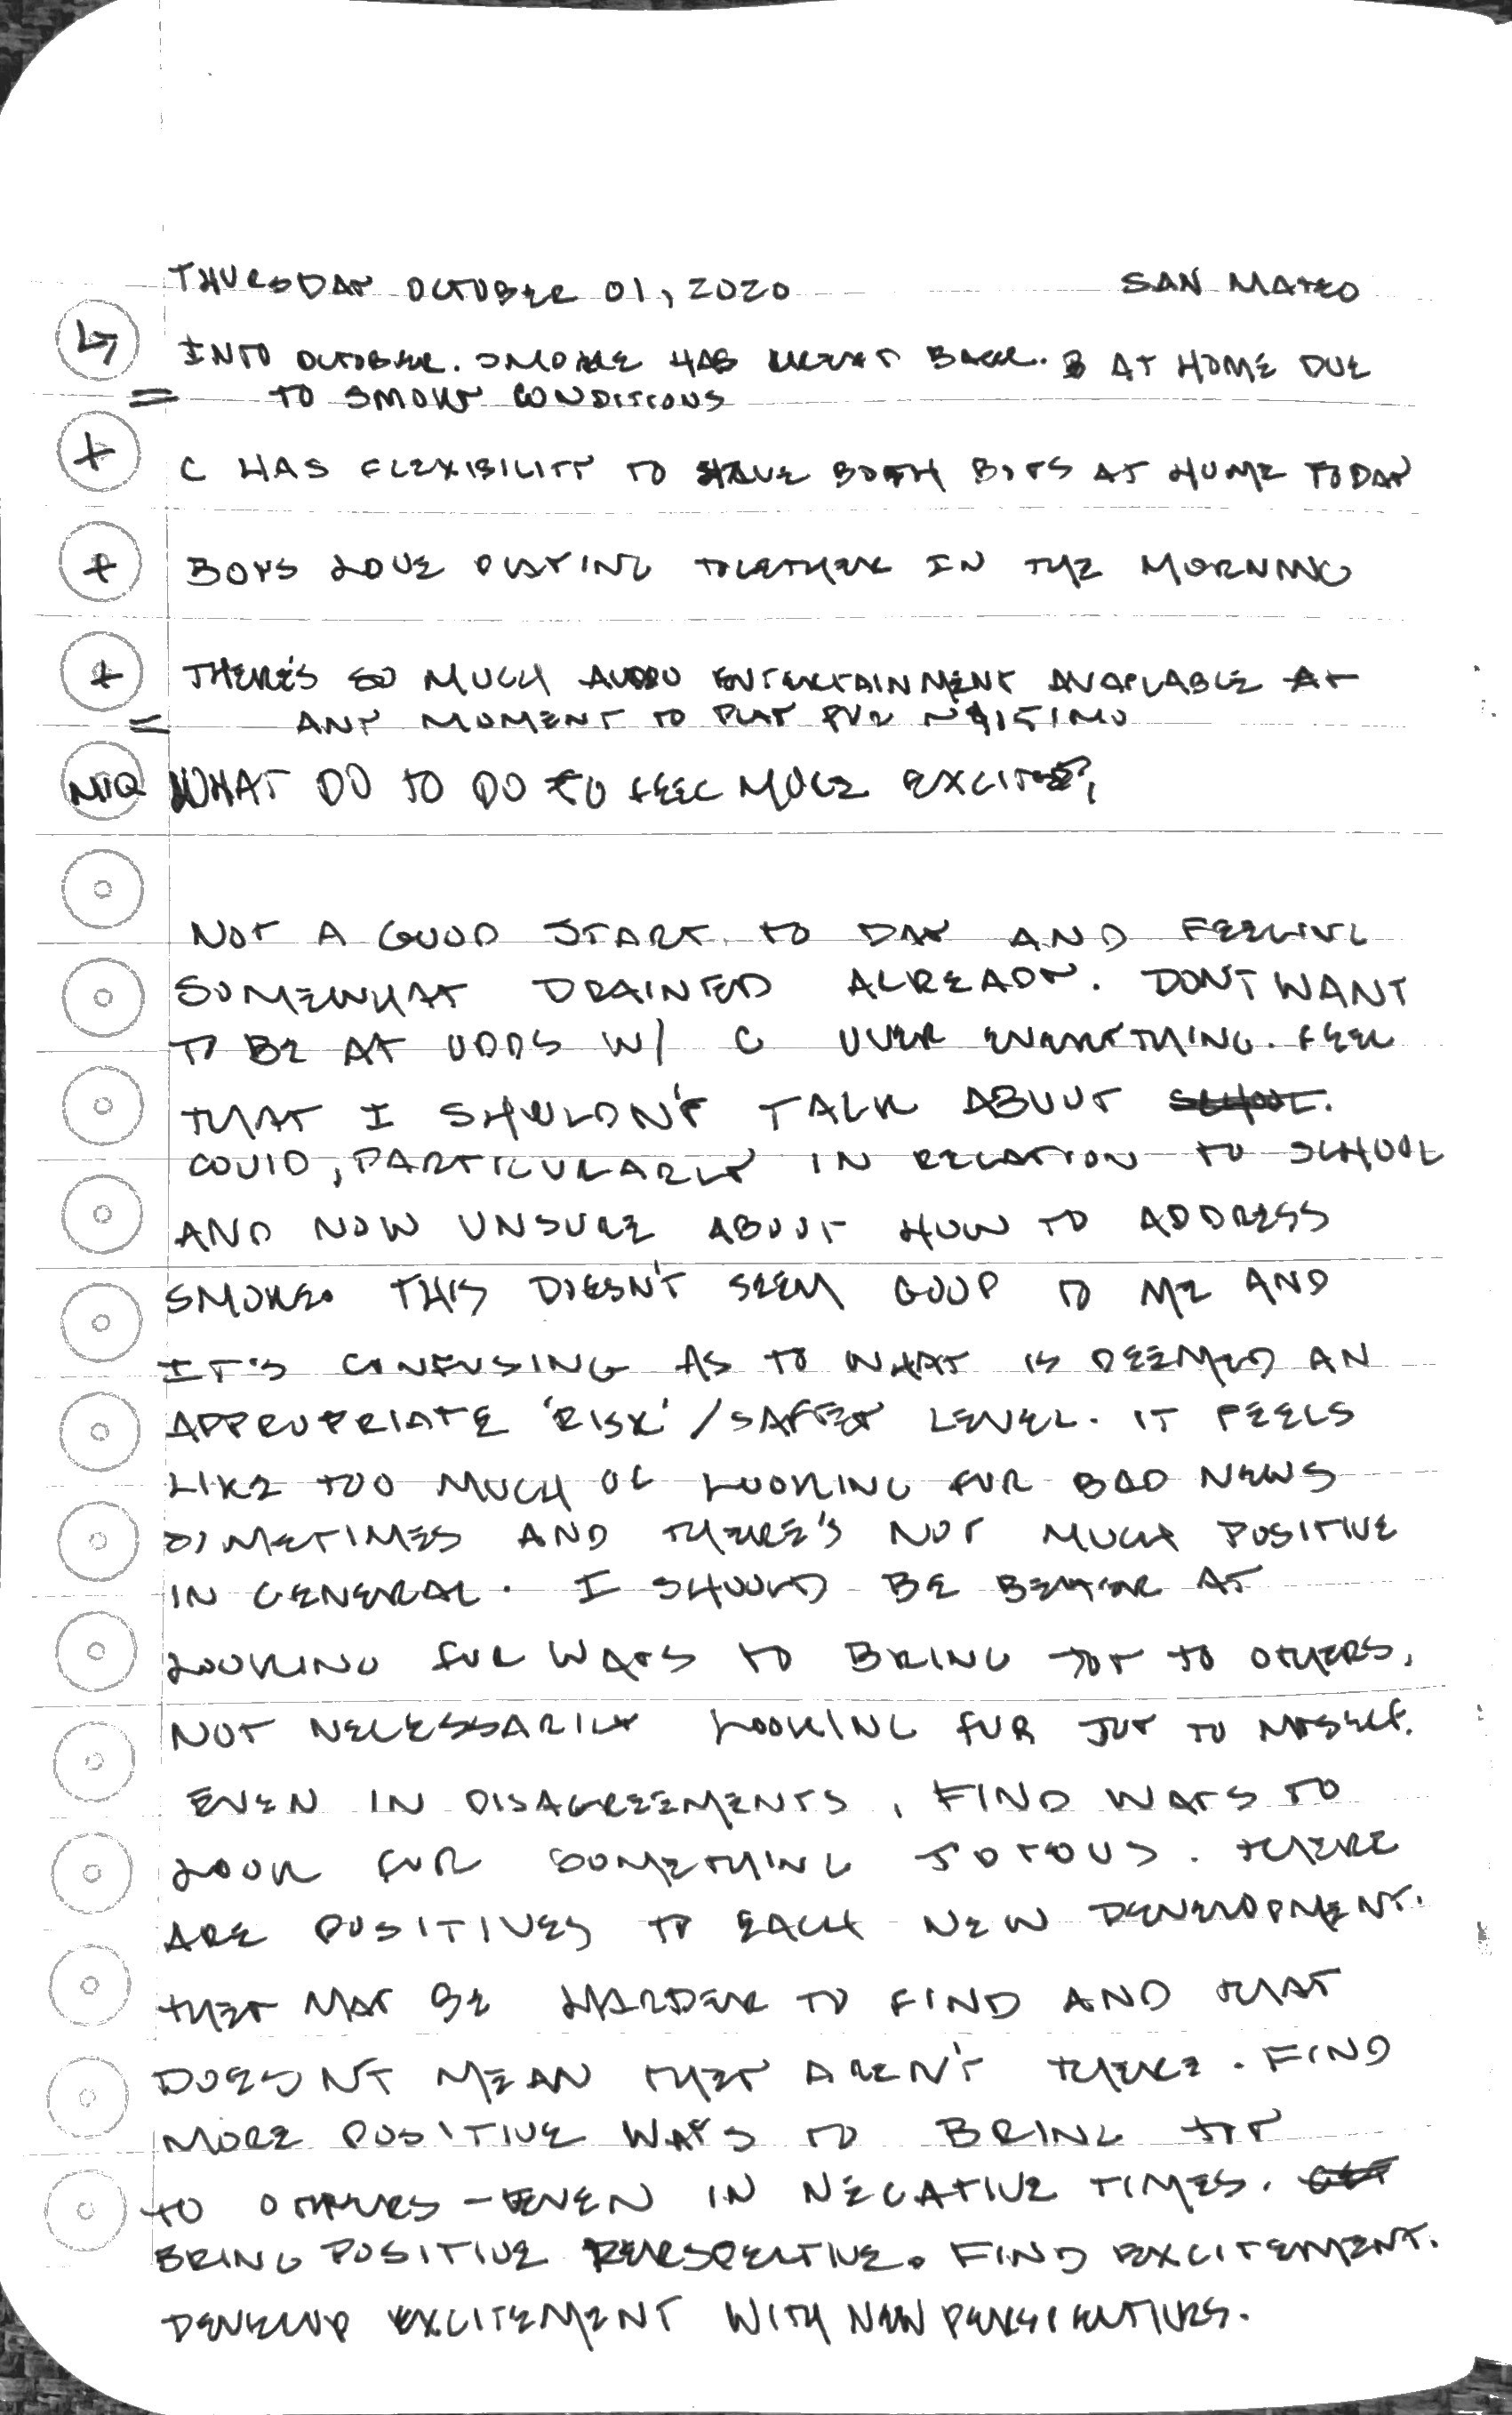 THURSDAY OCTOBER 01, 2020 SAN MATEO
↳ INTO OCTOBER. SMOKE HAS BACK. B AT HOME DUE
= TO SMOKE CONDITIONS
+ C HAS FLEXIBILITY TO HAVE BOTH BOYS AT HOME TODAY
+ BOYS LOVE PLAYING TOGETHER IN THE MORNING
+ THERE'S SO MUCH AUDIO ENTERTAINMENT AVAILABLE AT
= ANY MOMENT TO PLAY FOR
MIQ WHAT DO TO DO TO FEEL MORE EXCITED?
NOT A GOOD START TO DAY AND FEELING
SOMEWHAT DRAINED ALREADY. DONT WANT
TO BE AT ODDS W/ C OVER EVERYTHING. FEEL
THAT I SHOULDN'T TALK ABOUT SCHOOL.
COVID, PARTICULARLY IN RELATION TO SCHOOL
AND NOW UNSURE ABOUT HOW TO ADDRESS
SMOKE. THIS DOESN'T SEEM GOOD TO ME AND
IT'S CONFUSING AS TO WHAT IS DEEMED AN
APPROPRIATE 'RISK'/SAFETY LEVEL. IT FEELS
LIKE TOO MUCH OF LOOKING FOR BAD NEWS
SOMETIMES AND THERE'S NOT MUCH POSITIVE
IN GENERAL. I SHOULD BE BETTER AT
LOOKING FOR WAYS TO BRING JOY TO OTHERS,
NOT NECESSARILY LOOKING FOR JOY TO MYSELF.
EVEN IN DISAGREEMENTS, FIND WAYS TO
LOOK FOR SOMETHING JOYOUS. THERE
ARE POSITIVES TO EACH NEW DEVELOPMENT.
THEY MAY BE HARDER TO FIND AND THAT
DOESN'T MEAN THEY AREN'T THERE. FIND
MORE POSITIVE WAYS TO BRING JOY
TO OTHERS - EVEN IN NEGATIVE TIMES.
BRING POSITIVE PERSPECTIVE. FIND EXCITEMENT.
DEVELOP EXCITEMENT WITH NEW PERSPECTIVES.